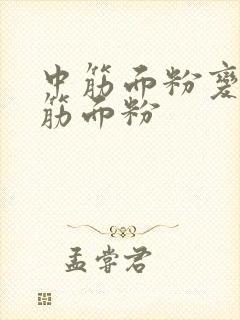 中筋面粉变
筋面粉
孟尝君